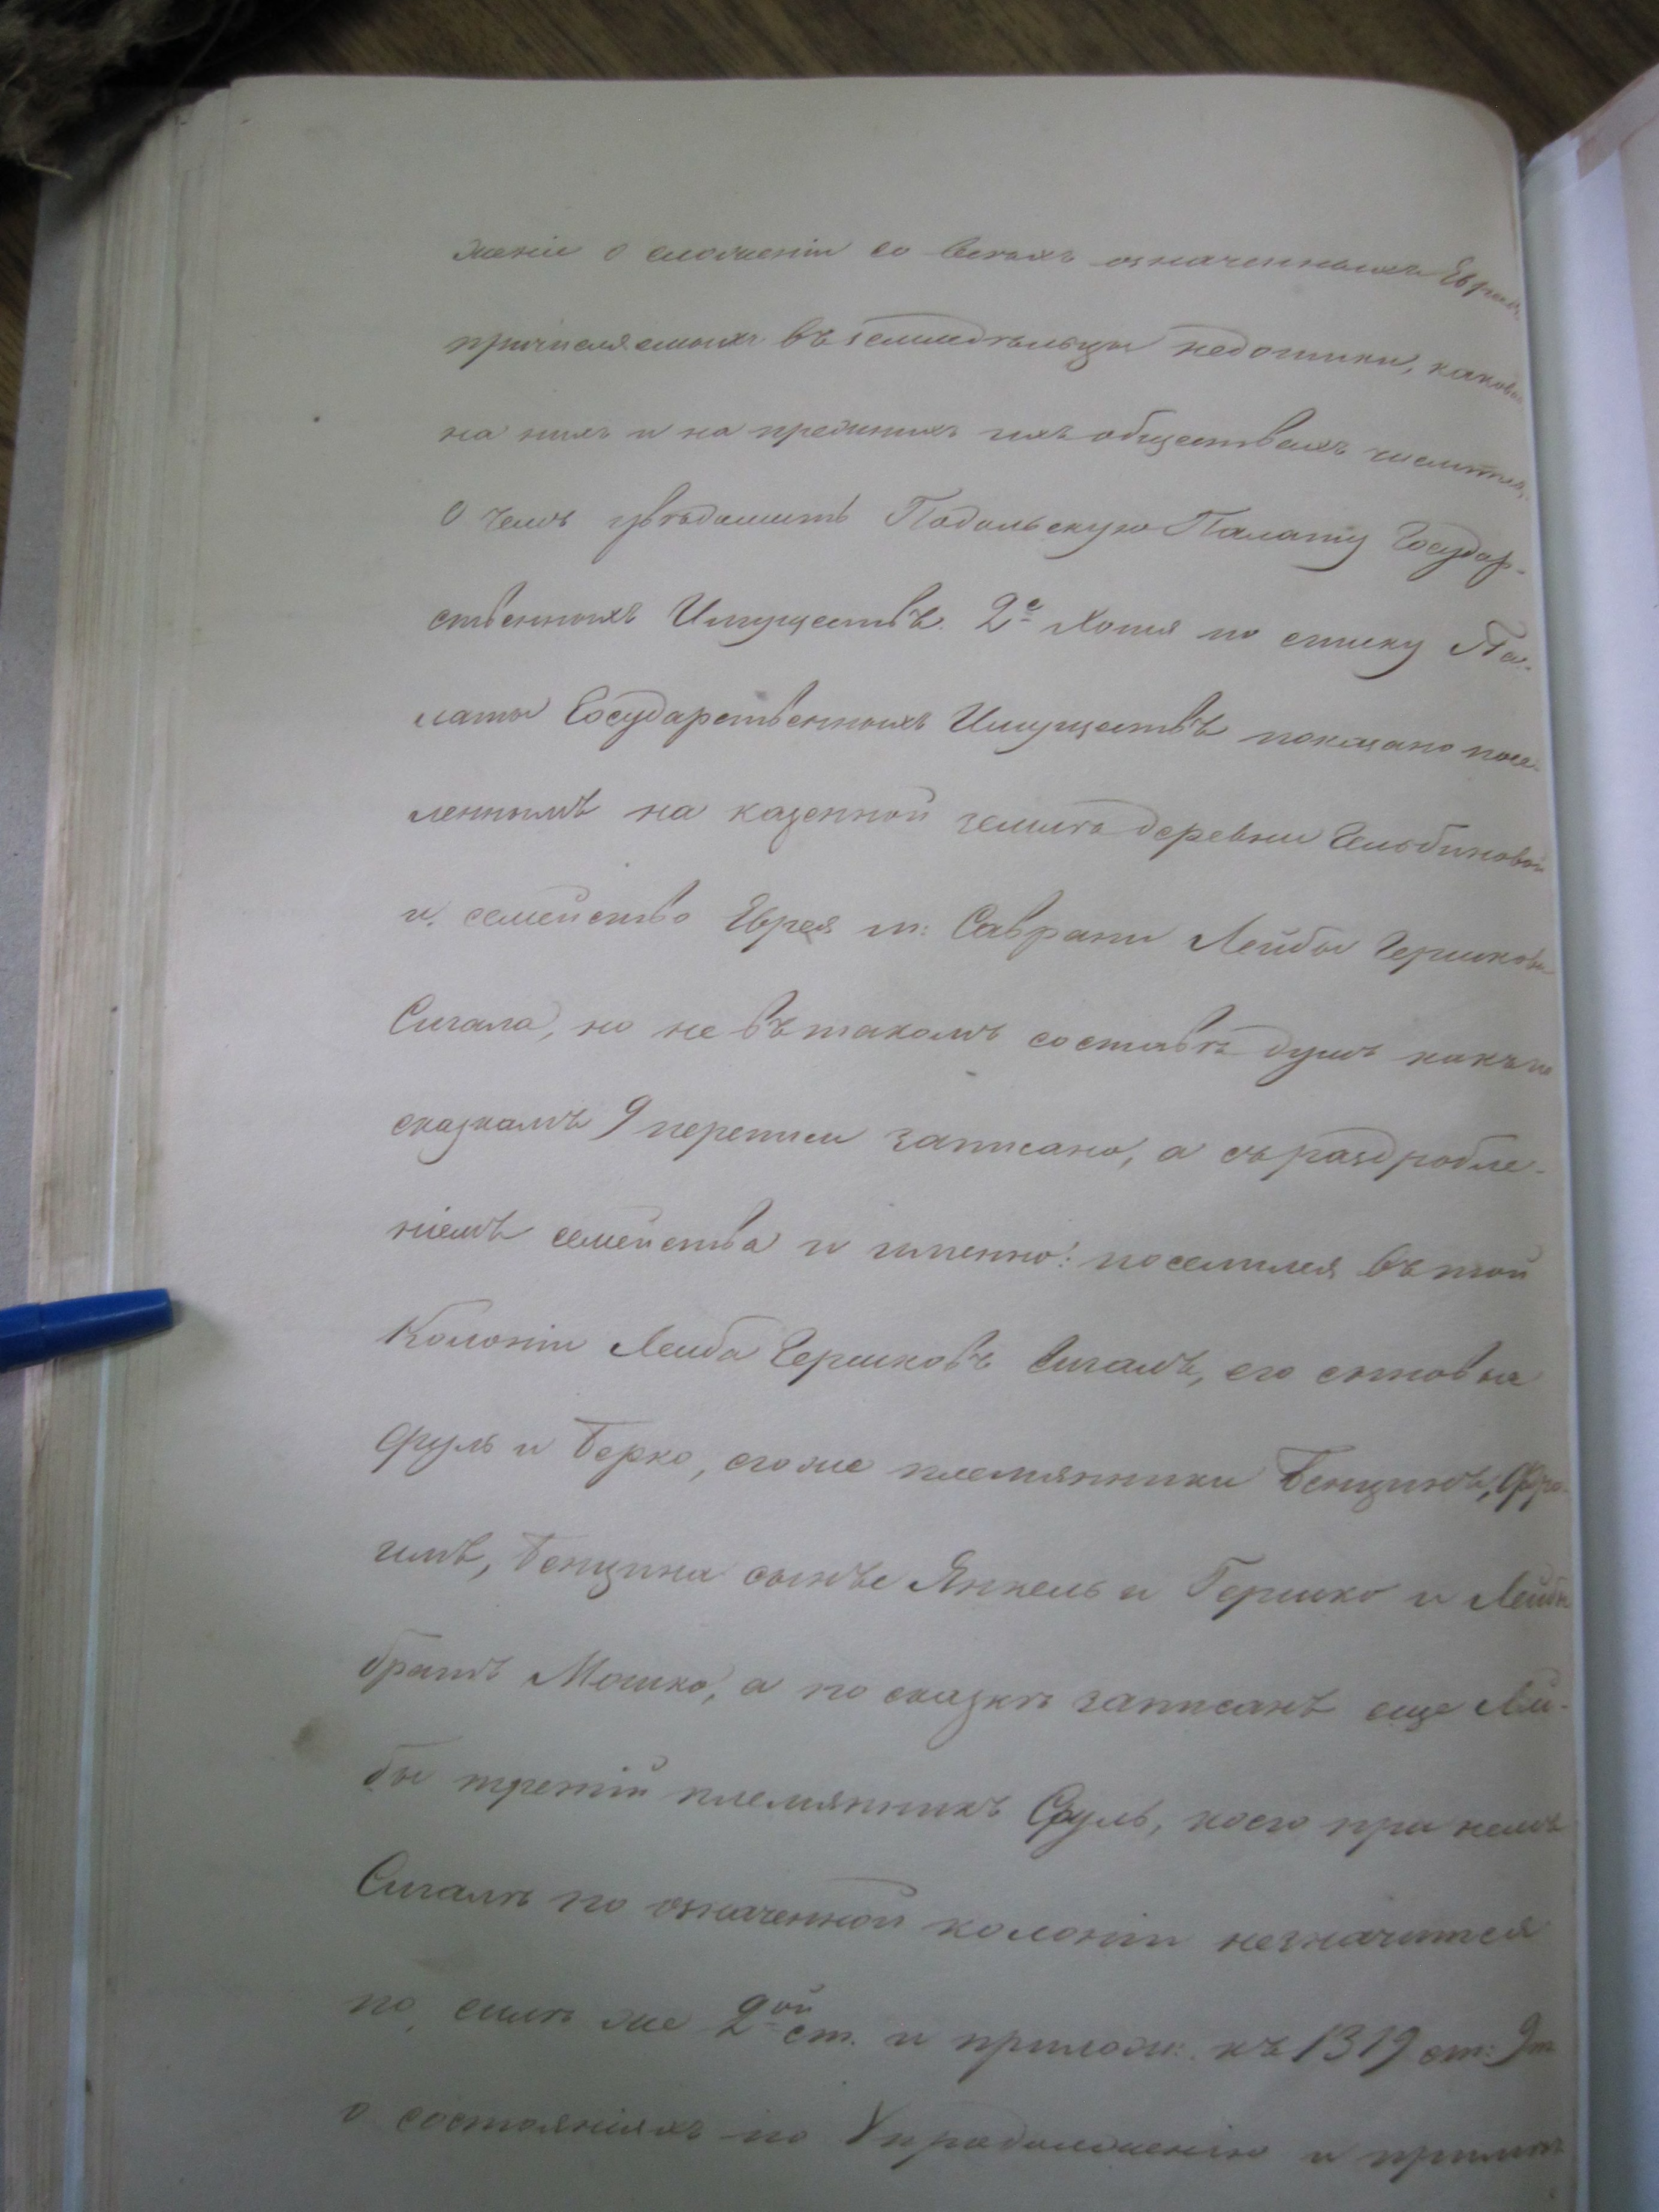 женіи о сложеніи со всѣхъ означенныхъ Евреевъ
причисляемыхъ въ земледѣльцы недоимки, каковая
на нихъ и на прежнихъ ихъ обществахъ числится,
о чемъ увѣдомить Подольскую Палату Государ-
ственныхъ Имуществъ. 2е Хотя по списку Па-
латы Государственныхъ Имуществъ показано посе-
леннымъ на казенной землѣ деревни
и семейство Еврея м: Саврани Лейбы Гершкова
Сигала, но не въ такомъ составѣ душъ какъ по
сказкамъ 9 переписи записано, а съ раздробле-
ніемъ семейства и именно: поселился въ той
Колоніи Лейба Гершковъ Сигалъ, его сыновья
Сруль и Берко, его же племянники Бенционъ, Фро-
имъ, Бенциона сынъе Янкель и Гершко и Лейбы
братъ Мошко, а по сказкѣ записанъ еще Лей-
бы третій племянникъ Сруль, коего при немъ
Сигалѣ по означенной колоніи незначится
по силѣ же 2ой ст. и прилож: къ 1319 ст: 9 т.
о состояніяхъ по V продолженію и